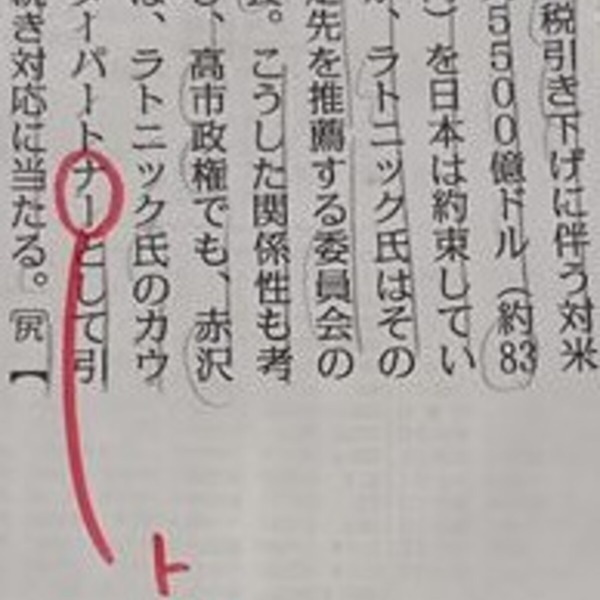 税引き下げに伴う対米
5500億ドル(約83
)を日本は約束してい
、ラトニック氏はその
先を推薦する委員会の
。こうした関係性も考
、高市政権でも、赤沢
は、ラトニック氏のカウ
ターパートナーとして引
き対応に当たる。尻【
ト